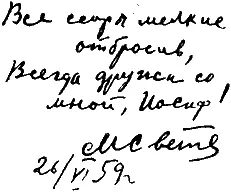 Все ссоры мелкие
отбросив,
Всегда дружи со
мной, Иосиф!
МСвет
26/VI 59г